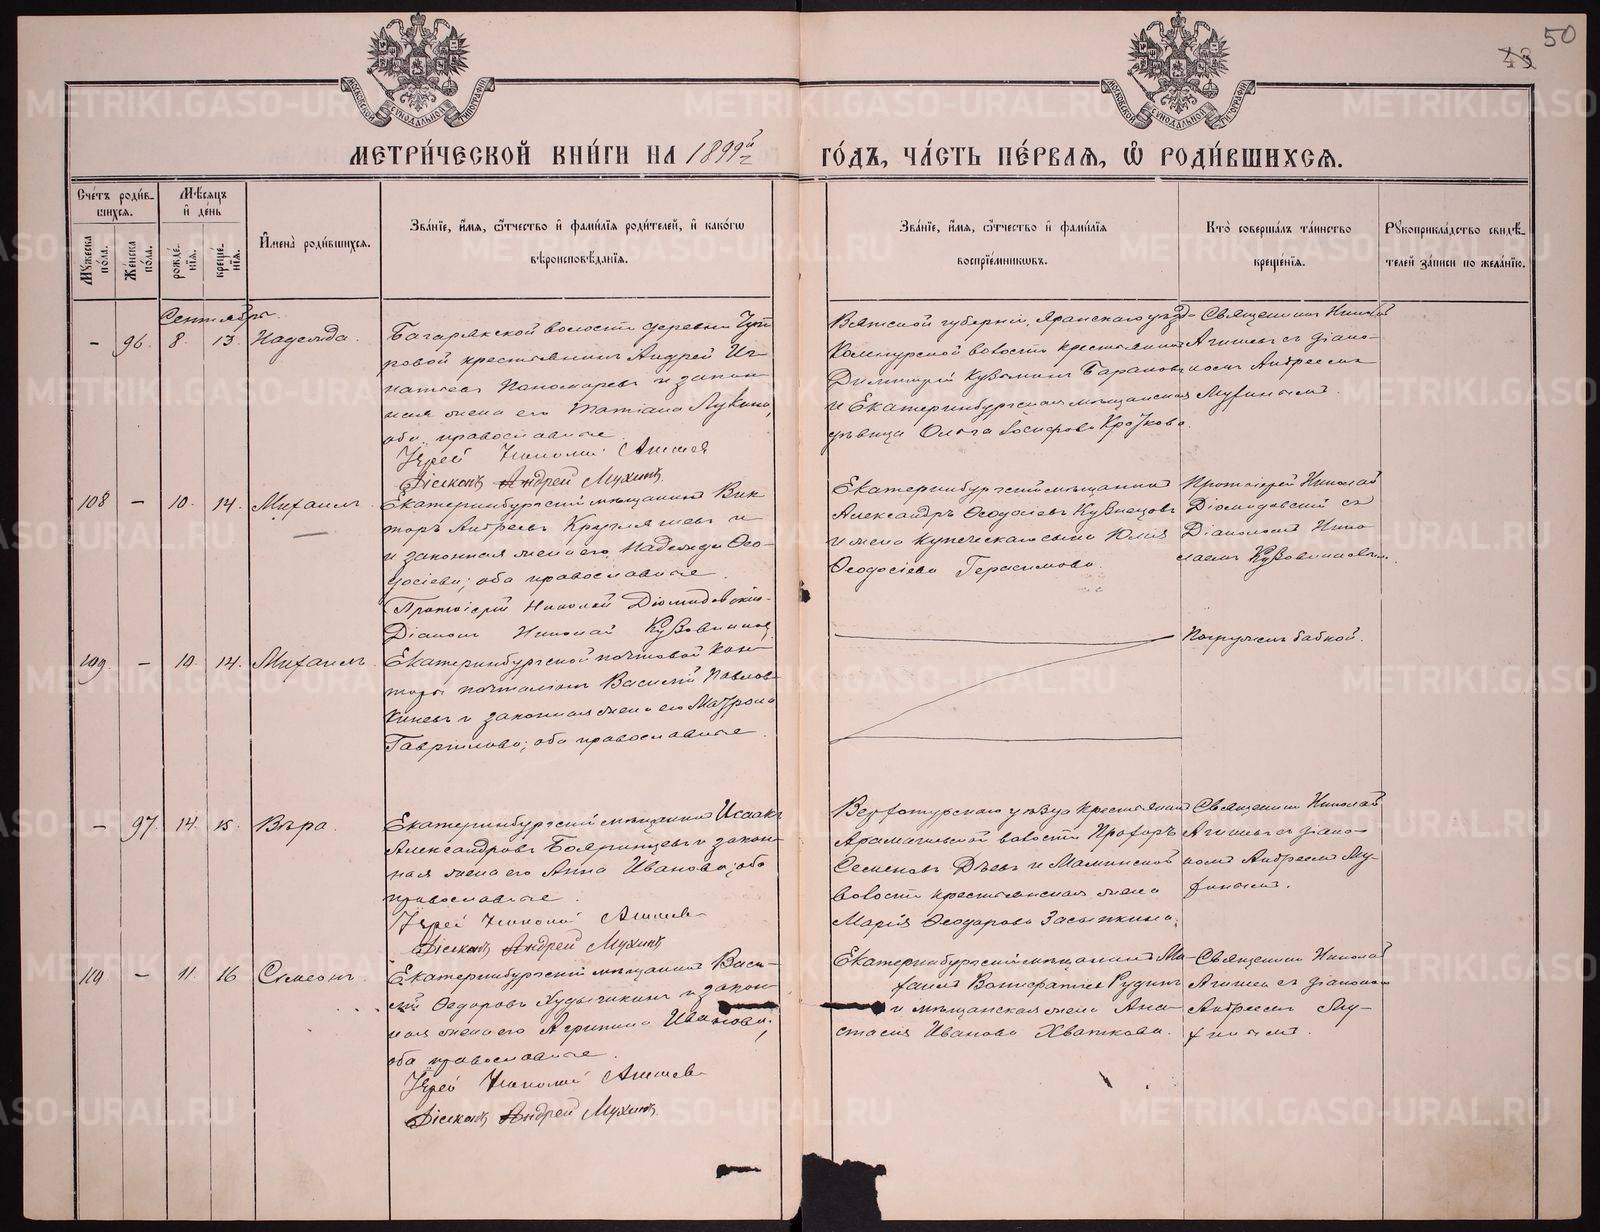 50
43
МОСКОВСКОЙ СѴНОДАЛЬНОЙ ТИПОГРАФІИ
МОСКОВСКОЙ СѴНОДАЛЬНОЙ ТИПОГРАФІИ
МЕТРИ́ЧЕСКОЙ КНИ́ГИ НА 1899й
ГО́ДЪ, ЧА́СТЬ ПЕ́РВАЯ, Ѡ РОДИ́ВШИХСЯ.
Сче́тъ роди́в-
шихся.
Мꙋ́жеска по́ла.
Же́нска по́ла.
Мѣ́сяцъ
и де́нь
рожде́-
нїя.
креще́-
нїя.
И́мена роди́вшихся.
Зва́нїе, и́мя, ѻ́тчество и фами́лїя роди́телей, и како́гѡ
вѣроисповѣ́данїя.
Зва́нїе, и́мя, ѻ́тчество и фами́лїя
воспрїе́мникѡвъ.
Кто̀ соверша́лъ та́инство
креще́нїя.
Рꙋкоприкла́дство свидѣ́-
телей за́писи по жела́нїю.
Сентябрь.
– 96. 8. 13. Надежда.
Багарякской волости деревни
ровой крестьянинъ Андрей Иг-
натьевъ Пономаревъ и закон-
ная жена его Татіана Лукина,
оба православные
Іерей Николай Агишев
Діаконъ Андрей Мухинъ
Вятской губерніи, Яранскаго уѣзда
волости крестьянинъ
Димитрій Кузьминъ Барановъ
и Екатеринбургская мѣщанская
дѣвица Ольга Іосифова
Священникъ Николай
Агишевъ съ діако-
номъ Андреемъ
Мухинымъ.
108 – 10. 14. Михаилъ
Екатеринбургскій мѣщанинъ Вик-
торъ Андреевъ Кругляшевъ и
и законная жена его Надежда Ѳео-
досіева; оба православные.
Протоіерей Николай Діомидовскій
Діаконъ Николай Кузовниковъ
Екатеринбургскій мѣщанинъ
Александръ Ѳеодосіевъ Кузнецовъ
и жена купеческаго сына Юлія
Ѳеодосіева Герасимова.
Протоіерей Николай
Діомидовскій съ
Діакономъ Нико-
лаемъ Кузовниковымъ.
109. – 10. 14. Михаилъ
Екатеринбургской почтовой кон-
торы почталіонъ Василій Павлов
и законная жена его Матрона
Гавріилова; оба православные.
Погруженъ бабкой.
– 97. 14. 15. Вѣра.
Екатеринбургскій мѣщанинъ Исаакъ
Александровъ Бояринцевъ и закон-
ная жена его Анна Иванова; оба
православные.
Іерей Николай Агишев
Діаконъ Андрей Мухинъ
Верхотурскаго уѣзда крестьянинъ
Арамашевской волости Прохоръ
Семеновъ Дѣевъ и Маминской
волости крестьянская жена
Марія Ѳеодорова Засыпкина.
Священникъ Николай
Агишевъ съ діако-
номъ Андреемъ Му-
хинымъ.
110 – 11. 16 Симеонъ
Екатеринбургскій мѣщанинъ Васи-
лій Ѳедоровъ и закон-
ная жена его Агрипина Иванова;
оба православные.
Іерей Николай Агишев
Діаконъ Андрей Мухинъ.
Екатеринбургскій мѣщанинъ Ми-
хаилъ Вонифатьевъ Рудинъ
и мѣщанская жена Ана-
стасія Иванова Хваткова.
Священникъ Николай
Агишевъ съ діакономъ
Андреемъ Му-
хинымъ.
METRIKI.GASO-URAL.RU